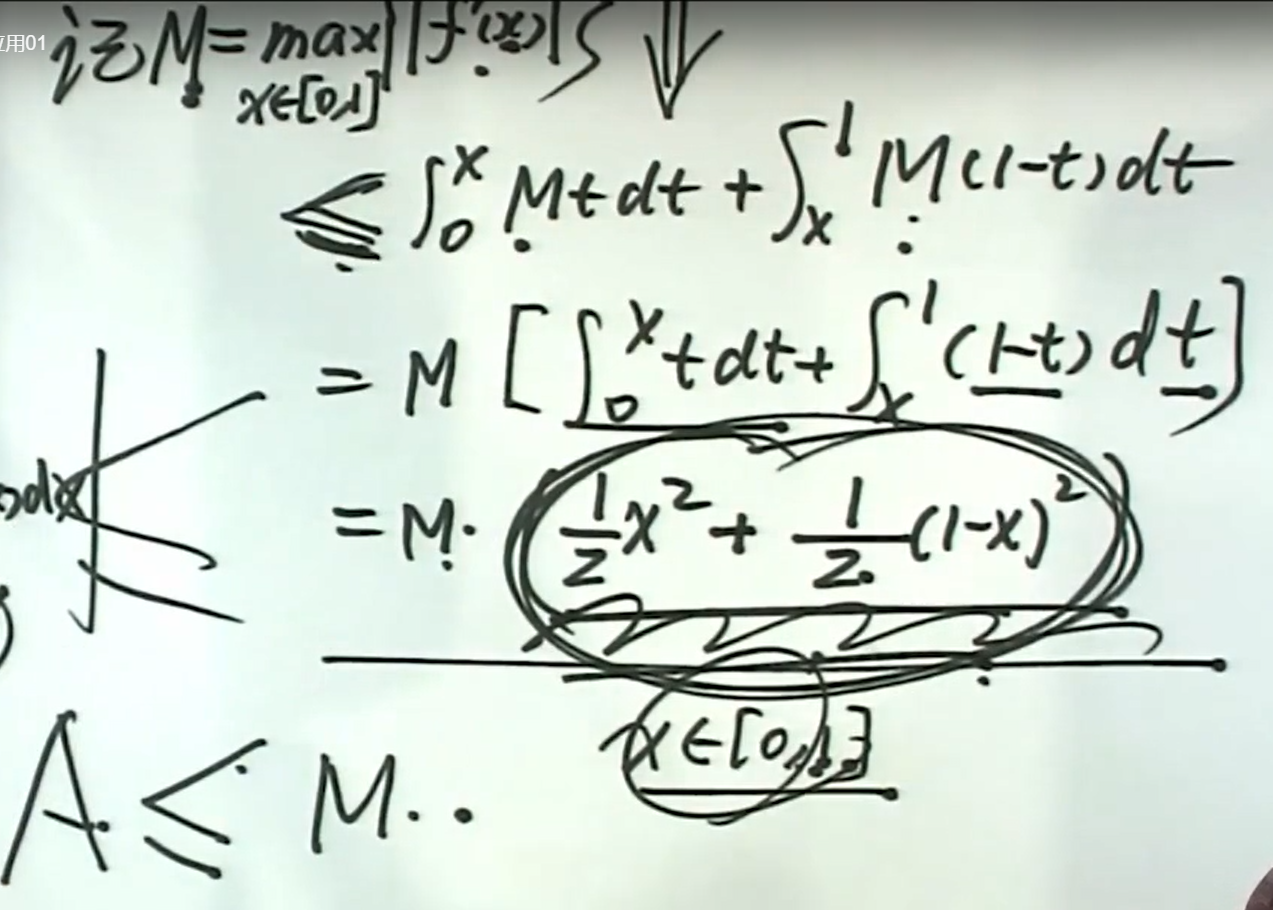 应用01
记 M = max |f'(x)|
x∈[0,1]
≤ ∫₀ˣ Mt dt + ∫ₓ¹ M(1-t)dt
= M [∫₀ˣ t dt + ∫ₓ¹ (1-t) dt]
dx
= M· (1/2 x² + 1/2 (1-x)²)
x∈[0,1]
A ≤ M·